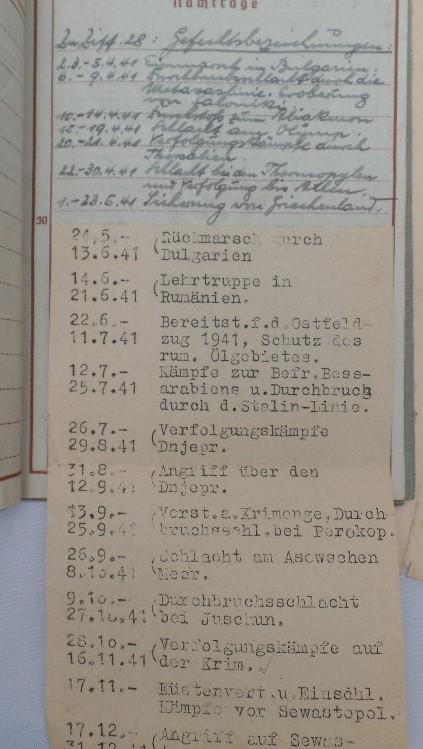 Nachträge
Zu Ziff. 28: Gefechtsbezeichnungen:
2.3.-5.4.41 Einmarsch in Bulgarien.
6.-9.4.41 Durchbruchsschlacht durch die
Metaxaslinie. Eroberung
von Saloniki.
10.-14.4.41 Durchstoß zum Aliakmon
15.-19.4.41 Schlacht am Olymp.
20.-21.4.41 Verfolgungskämpfe durch
Thessalien.
22.-30.4.41 Schlacht bei den Thermopylen
und Verfolgung bis Athen.
1.-23.5.41 Sicherung von Griechenland.
30
24.5.- (Rückmarsch durch
13.6.41 Bulgarien
14.6.- (Lehrtruppe in
21.6.41 Rumänien.
22.6.- Bereitst.f.d.Ostfeld-
11.7.41 zug 1941, Schutz des
rum. Ölgebietes.
12.7.- Kämpfe zur Befr.Bess-
25.7.41 arabiens u.Durchbruch
durch d.Stalin-Linie.
26.7.- (Verfolgungskämpfe
29.8.41 Dnjepr.
31.8.- (Angriff über den
12.9.41 Dnjepr.
13.9.- (Vorst.a.Krimenge,Durch
25.9.41 bruchsschl.bei Perekop.
26.9.- (Schlacht am Asowschen
8.10.41 Meer.
9.10.- (Durchbruchsschlacht
27.10.41 bei Juschun.
28.10.- (Verfolgungskämpfe auf
16.11.41 der Krim.
17.11.- Küstenvert.u.Einschl.
Kämpfe vor Sewastopol.
17.12.- (Angriff auf Sewas-
31.12.41